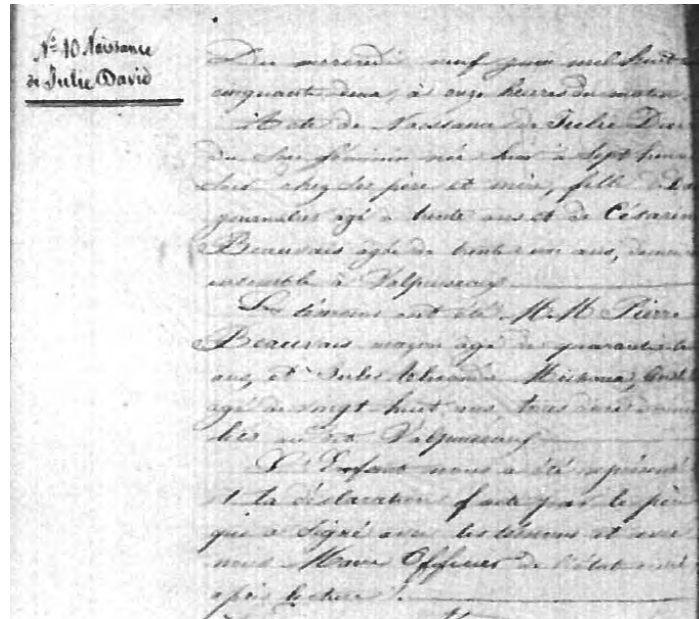 Nº 10 Naissance
de Julie David
Du mercredi neuf juin mil huit
cinquante deux, à onze heures du matin
Acte de Naissance de Julie Dav
du sexe féminin née hier à sept heur
soir chez ses père et mère, fille de
journalier âgé de trente ans et de Césarin
Beauvais âgée de trente un ans, demeu
ensemble à Valpuiseaux
Les témoins ont été M.M Pierre
Beauvais maçon âgé de quarante
ans, et Jules
âgé de vingt huit ans tous deux domi
liés au dit Valpuiseaux
L'Enfant nous a été représenté
et la déclaration faite par le père
qui a signé avec les témoins et avec
nous Maire Officier de l'état civil
après lecture.